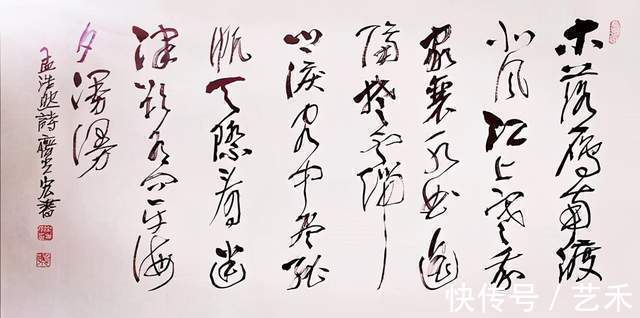 木落雁南渡
北风江上寒我
家襄水曲遥
隔楚云端
乡泪客中尽孤
帆天际看迷
津欲有问平海
夕漫漫
孟浩然詩宏書
快传号/艺禾